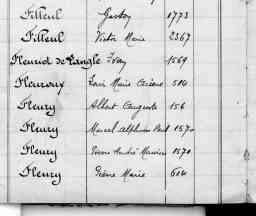 Filleul Gaston 1773
Filleul Victor Marie 2367
Fleuriot de Langle Ivan 1569
Fleuroux Louis Marie 514
Fleury Albert Auguste 156
Fleury Marcel Alphonse 1570
Fleury Pierre André Maurice 1570
Fleury Pierre Marie 614